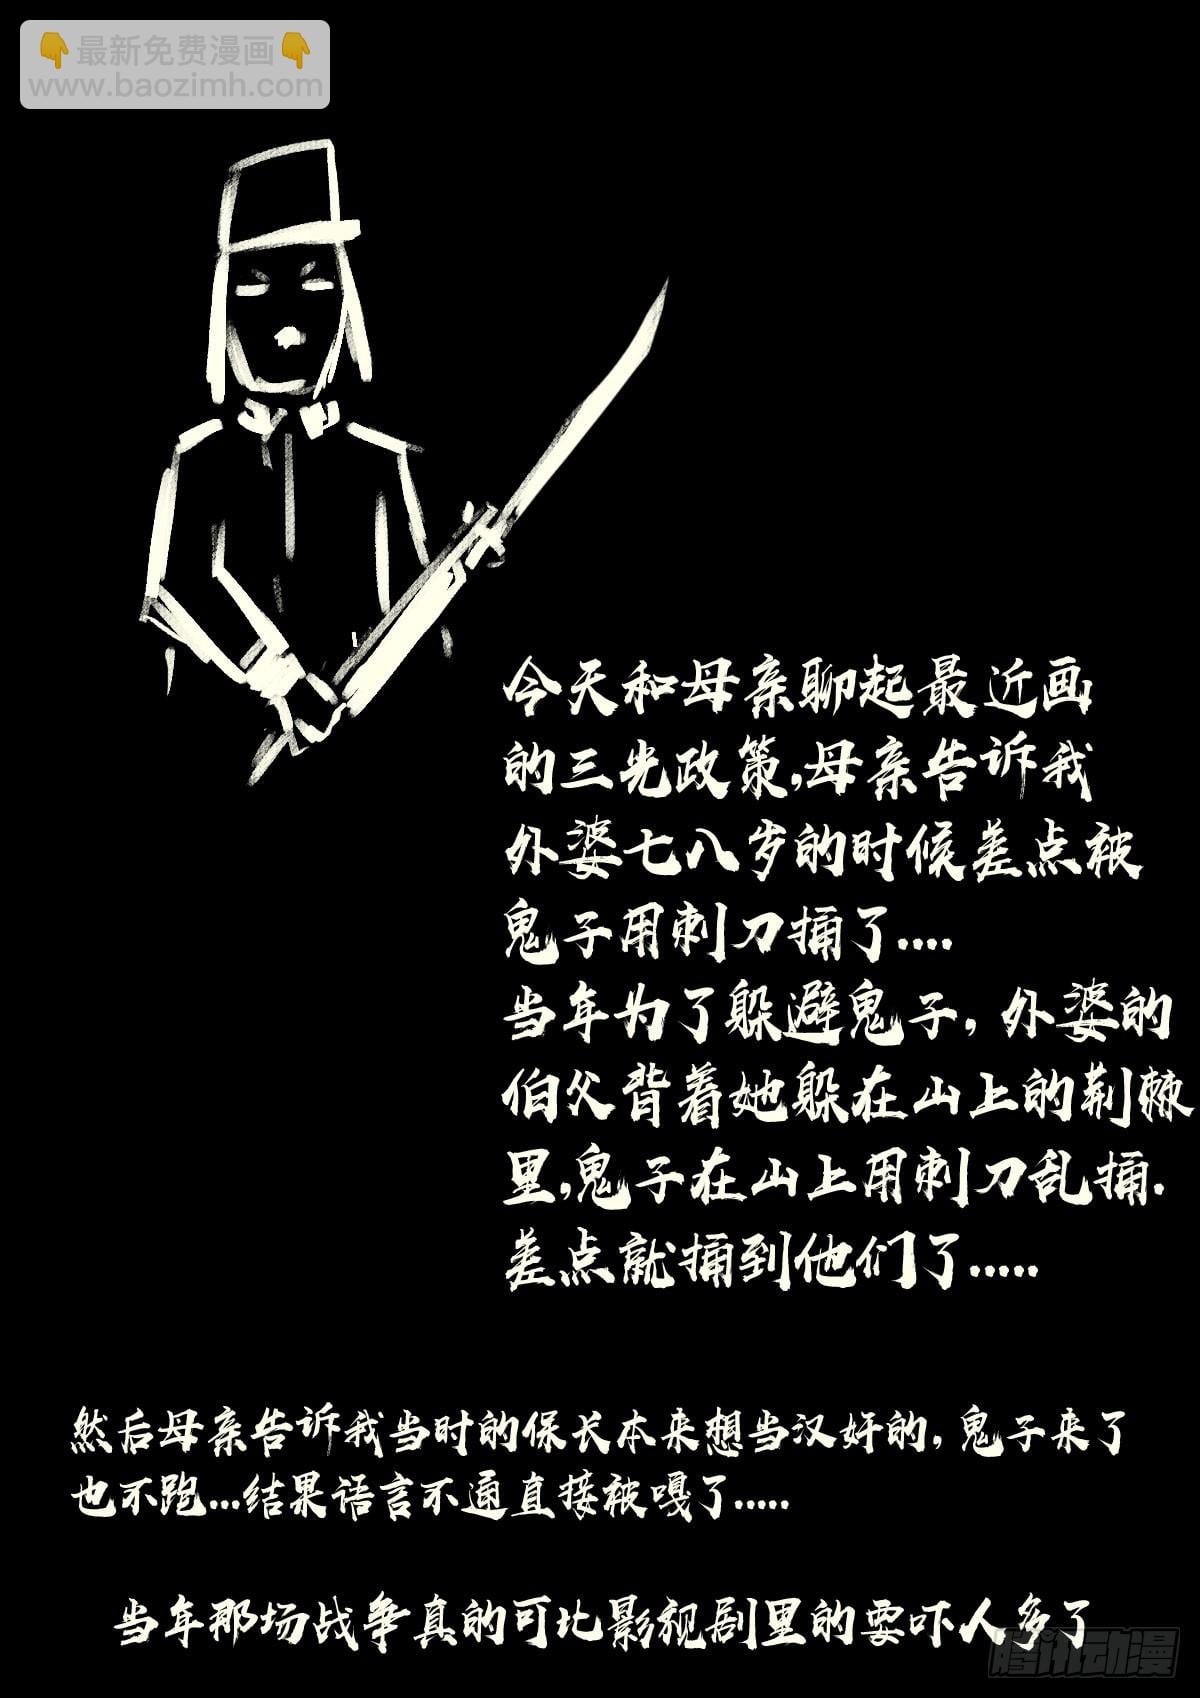 👇最新免费漫画👇
www.baozimh.com
今天和母亲聊起最近画
的三光政策,母亲告诉我
外婆七八岁的时候差点被
鬼子用刺刀捅了....
当年为了躲避鬼子,外婆的
伯父背着她躲在山上的荆棘
里,鬼子在山上用刺刀乱捅.
差点就捅到他们了.....
然后母亲告诉我当时的保长本来想当汉奸的,鬼子来了
也不跑...结果语言不通直接被嘎了.....
当年那场战争真的可比影视剧里的要吓人多了
腾讯动漫